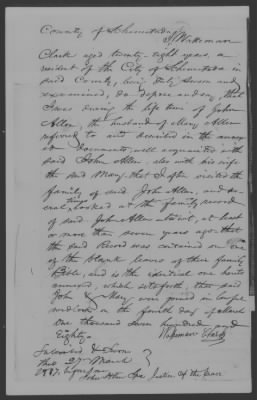 County of Schenectady
I, Wakeman
Clark aged twenty-eight years, a
resident of the City of Schenectada in
said County, being duly sworn and
examined, do depose and say, that
I was during the life time of John
Allen, the husband of Mary Allen
referred to and described in the annex-
ed Documents, well acquainted with
said John Allen, also with his wife
the said Mary, that I often visited the
family of said John Allen, and se-
veral times looked at the family record
of said John Allen, at least
or more than seven years ago, that
the said Record was contained on one
of the blank leaves of their family
Bible, and is the identical one hereto
annexed, which sets forth, that said
John & Mary were joined in lawful
wedlock on the fourth day of March
One thousand Seven hundred and
Eighty.
Wakeman Clark
Subscribed & Sworn
this 27 March
1837, before me
John Justice of the Peace